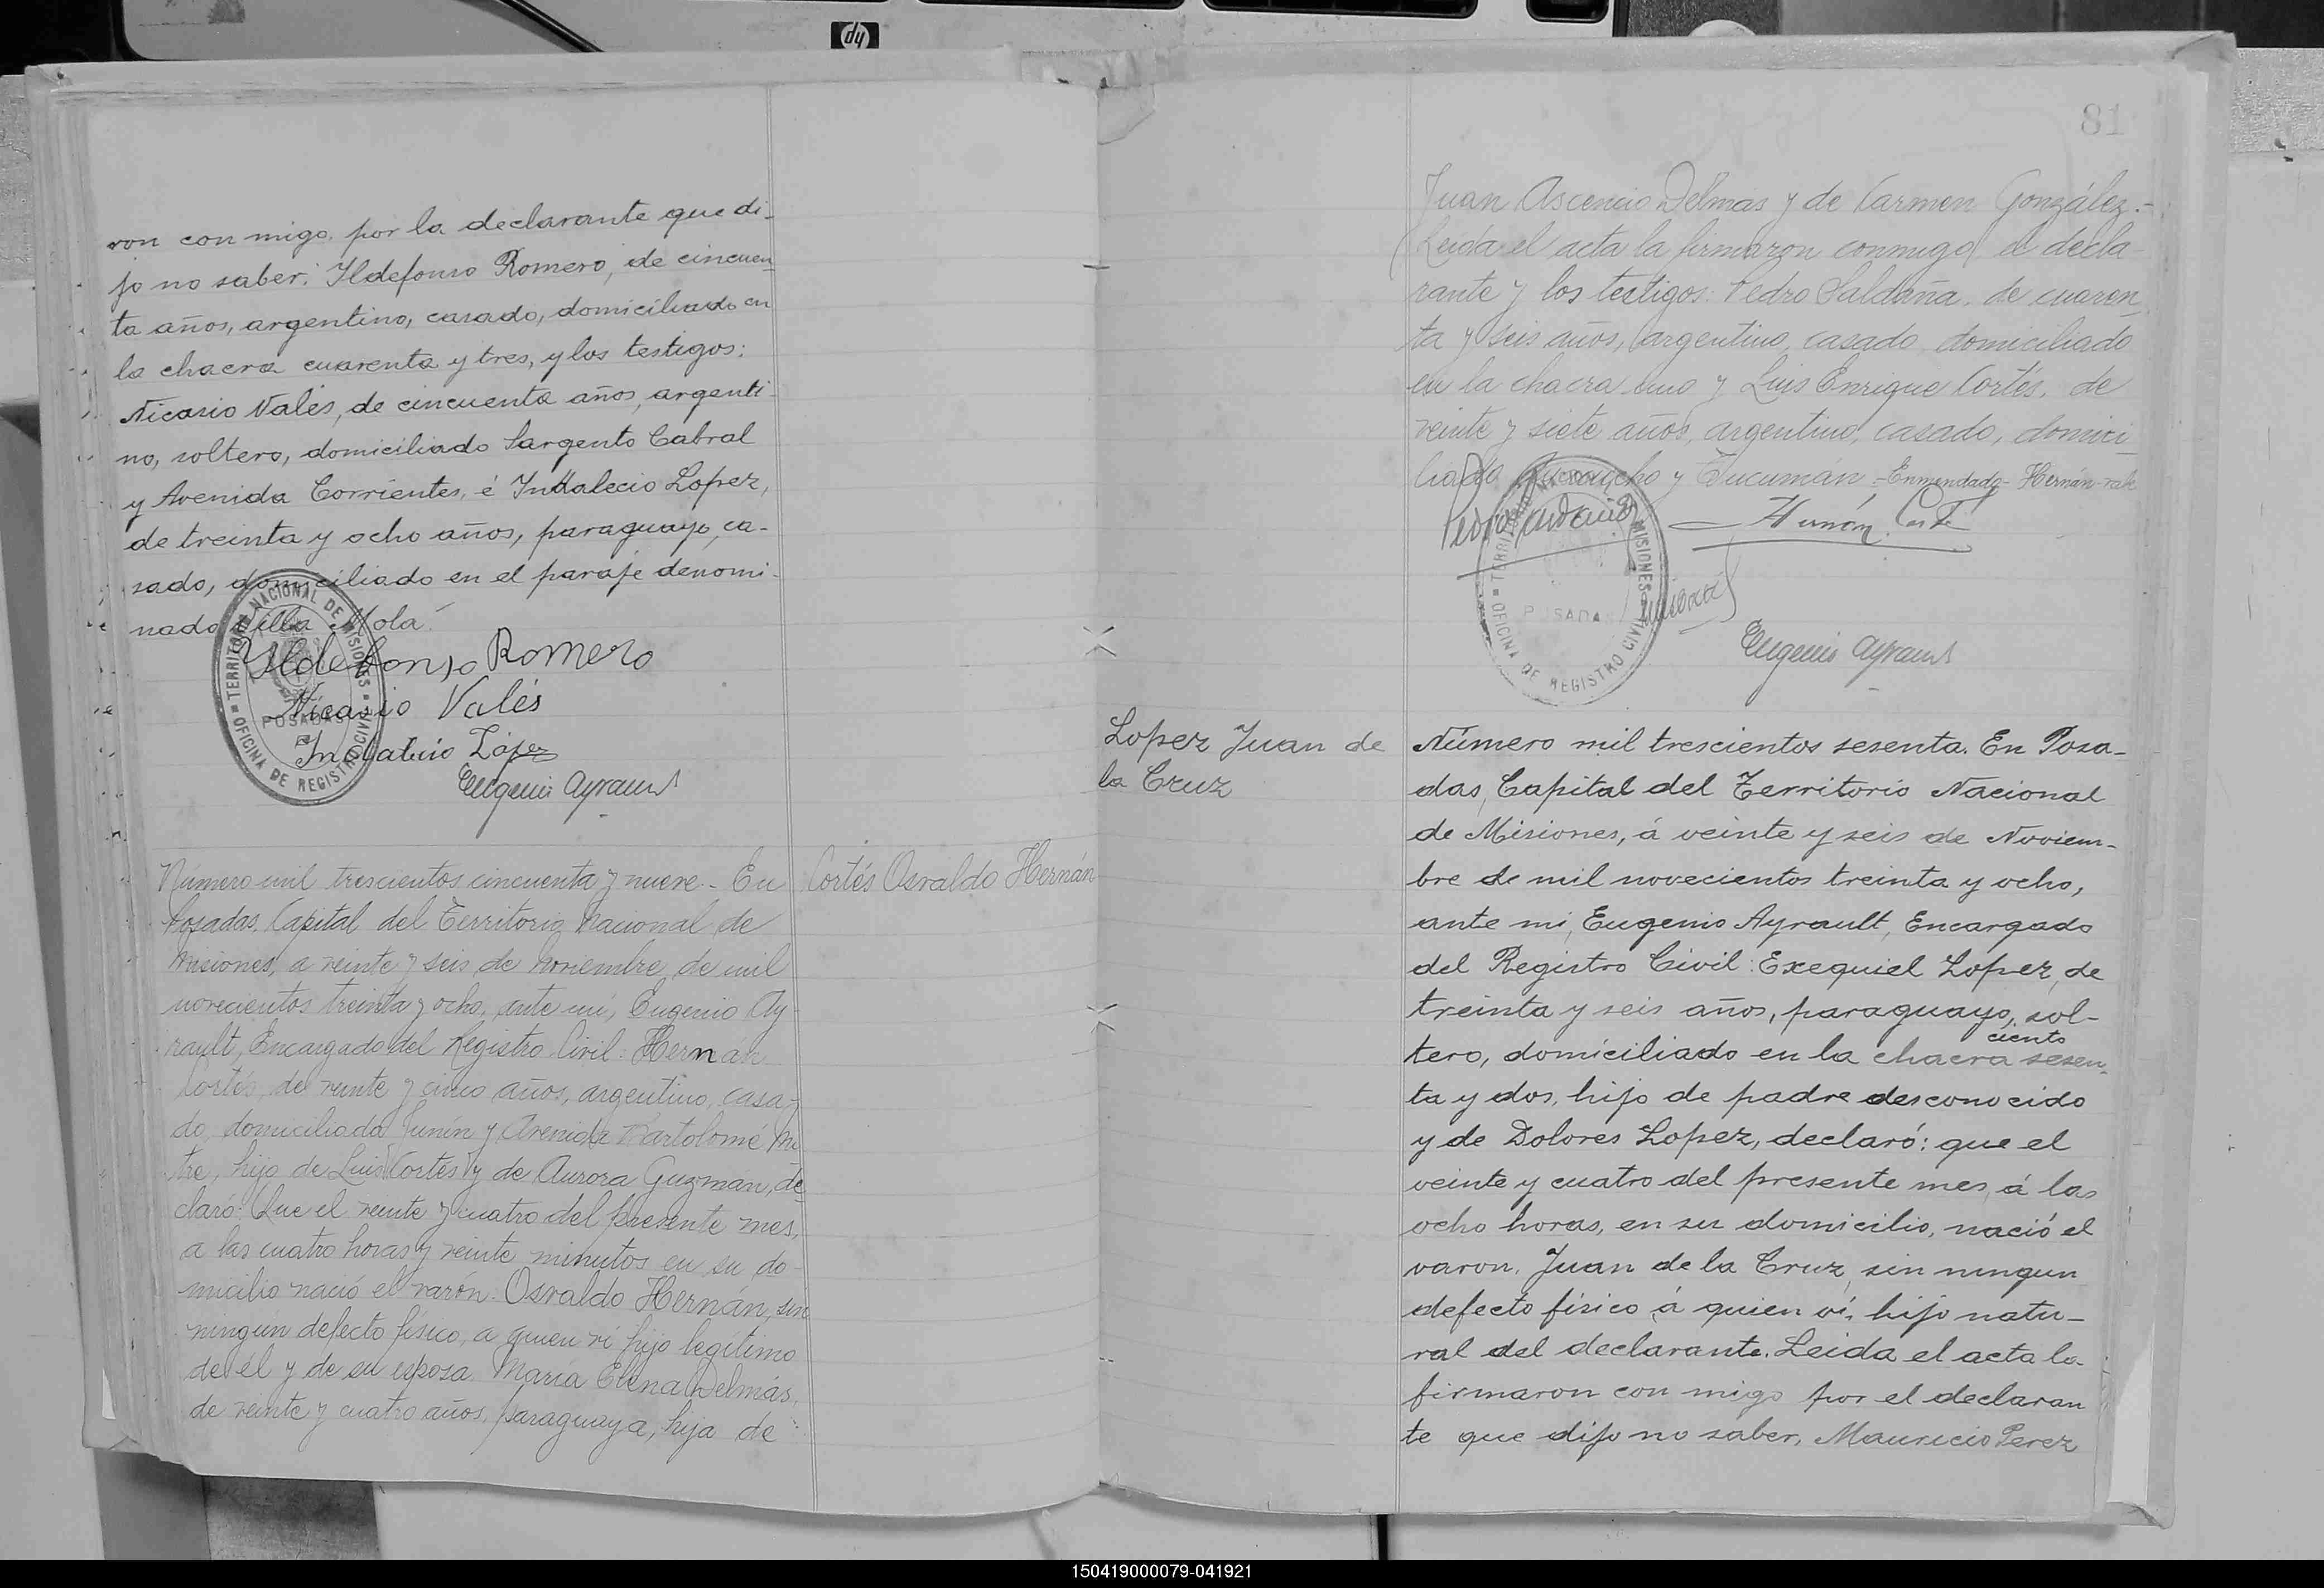 ron con migo, por la declarante que di-
jo no saber: Ildefonso Romero, de cincuen-
ta años, argentino, casado, domiciliado en
la chacra cuarenta y tres, y los testigos:
Nicasio Valés, de cincuenta años, argenti-
no, soltero, domiciliado Sargento Cabral
y Avenida Corrientes, é Indalecio Lopez,
de treinta y ocho años, paraguayo, ca-
sado, domiciliado en el paraje denomi-
nado Villa Mola.
Ildefonso Romero
Nicasio Valés
Indalecio López
Eugenio Ayrault
TERRITORIO NACIONAL DE MISIONES
POSADAS
OFICINA DE REGISTRO CIVIL
Cortés Osvaldo Hernán
Número mil trescientos cincuenta y nueve.- En
Posadas, Capital del Territorio Nacional de
Misiones, a veinte y seis de Noviembre de mil
novecientos treinta y ocho, ante mi, Eugenio Ay-
rault, Encargado del Registro Civil: Hernan
Cortés, de veinte y cinco años, argentino, casa-
do, domiciliado Junín y Avenida Bartolomé Mi
tre, hijo de Luis Cortés y de Aurora Guzmán, de
claró: Que el veinte y cuatro del presente mes,
a las cuatro horas y veinte minutos en su do-
micilio nació el varón. Osvaldo Hernán, sin
ningun defecto físico, a quien ví hijo legítimo
de él y de su esposa María Elena Delmás,
de veinte y cuatro años, paraguaya, hija de
81
Juan Ascencio Delmás y de Carmen González.-
Leida el acta la firmaron conmigo el decla-
rante y los testigos: Pedro Saldaña, de cuaren
ta y seis años, argentino, casado, domiciliado
en la chacra uno y Luis Enrique Cortés, de
veinte y siete años, argentino, casado, domici
liado Ayacucho y Tucumán.-Enmendado- Hernán-vale
Pedro Saldaña
Hernán Cortés
TERRITORIO NACIONAL DE MISIONES
POSADAS
OFICINA DE REGISTRO CIVIL
Eugenio Ayrault
Lopez Juan de
la Cruz
Número mil trescientos sesenta. En Posa-
das, Capital del Territorio Nacional
de Misiones, á veinte y seis de Noviem-
bre de mil novecientos treinta y ocho,
ante mi, Eugenio Ayrault, Encargado
del Registro Civil: Exequiel Lopez, de
treinta y seis años, paraguayo, sol-
ciento
tero, domiciliado en la chacra sesen-
ta y dos, hijo de padre desconocido
y de Dolores Lopez, declaró: que el
veinte y cuatro del presente mes, á las
ocho horas, en su domicilio, nació el
varon, Juan de la Cruz, sin ningun
defecto físico á quien ví, hijo natu-
ral del declarante. Leida el acta la
firmaron con migo por el declaran
te que dijo no saber, Mauricio Perez
150419000079-041921